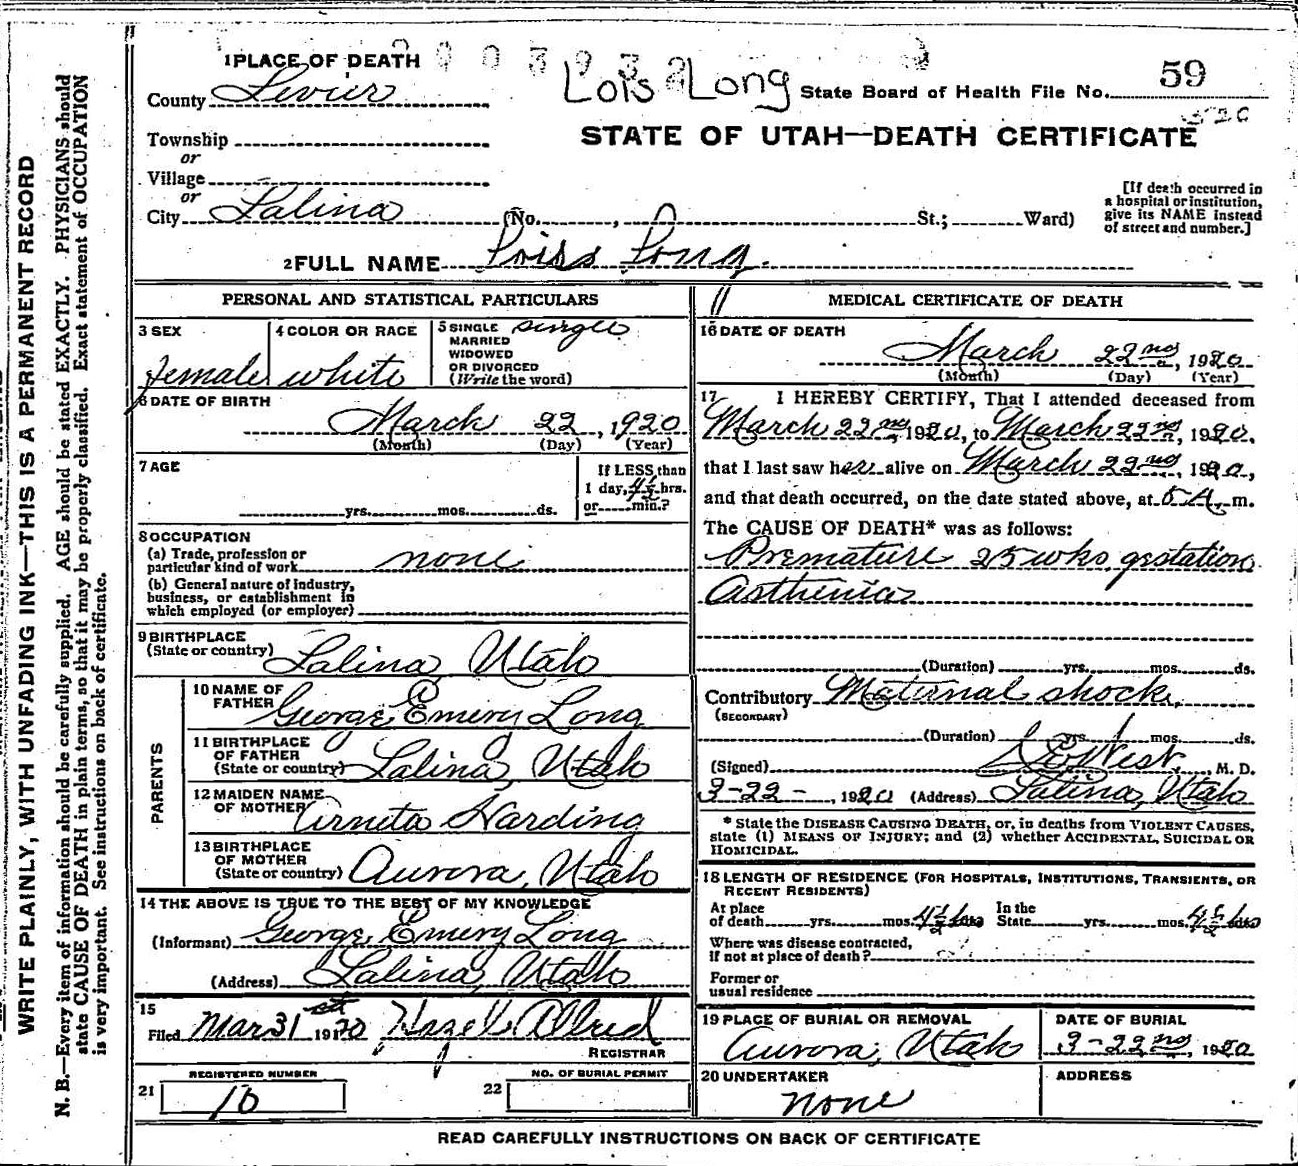 WRITE PLAINLY, WITH UNFADING INK—THIS IS A PERMANENT RECORD
N. B.—Every item of information should be carefully supplied. AGE should be stated EXACTLY. PHYSICIANS should
state CAUSE OF DEATH in plain terms, so that it may be properly classified. Exact statement of OCCUPATION
is very important. See instructions on back of certificate.
1 PLACE OF DEATH
County Sevier
Lois Long
State Board of Health File No. 59
Township
or
Village
or
City Salina (No. , St.; Ward)
STATE OF UTAH—DEATH CERTIFICATE
[If death occurred in
a hospital or institution,
give its NAME instead
of street and number.]
2 FULL NAME Loiss Long.
PERSONAL AND STATISTICAL PARTICULARS
3 SEX
female
4 COLOR OR RACE
white
5 SINGLE single
MARRIED
WIDOWED
OR DIVORCED
(Write the word)
6 DATE OF BIRTH
March 22, 1920
(Month) (Day) (Year)
7 AGE
yrs. mos. ds.
If LESS than
1 day, 4½ hrs.
or min.?
8 OCCUPATION
(a) Trade, profession or
particular kind of work none
(b) General nature of industry,
business, or establishment in
which employed (or employer)
9 BIRTHPLACE
(State or country) Salina, Utah
PARENTS
10 NAME OF
FATHER George Emery Long
11 BIRTHPLACE
OF FATHER
(State or country) Salina, Utah
12 MAIDEN NAME
OF MOTHER Arneta Harding
13 BIRTHPLACE
OF MOTHER
(State or country) Aurora, Utah
14 THE ABOVE IS TRUE TO THE BEST OF MY KNOWLEDGE
(Informant) George Emery Long
(Address) Salina, Utah
15
Filed Mar 31 st 1920 Hazel Allred
REGISTRAR
21 REGISTERED NUMBER
10
22 NO. OF BURIAL PERMIT
MEDICAL CERTIFICATE OF DEATH
16 DATE OF DEATH
March 22nd, 1920
(Month) (Day) (Year)
17 I HEREBY CERTIFY, That I attended deceased from
March 22nd 1920, to March 22nd, 1920,
that I last saw her alive on March 22nd, 1920,
and that death occurred, on the date stated above, at 5 A. m.
The CAUSE OF DEATH* was as follows:
Premature 25 wks gestation
Asthenia
(Duration) yrs. mos. ds.
Contributory Maternal shock.
(SECONDARY)
(Duration) yrs. mos. ds.
(Signed) West M. D.
3-22-, 1920 (Address) Salina, Utah
* State the DISEASE CAUSING DEATH, or, in deaths from VIOLENT CAUSES,
state (1) MEANS OF INJURY; and (2) whether ACCIDENTAL, SUICIDAL OR
HOMICIDAL.
18 LENGTH OF RESIDENCE (FOR HOSPITALS, INSTITUTIONS, TRANSIENTS, OR
RECENT RESIDENTS)
At place
of death yrs. mos. 4½ hrs
In the
State yrs. mos. 4½ hrs
Where was disease contracted,
if not at place of death?
Former or
usual residence
19 PLACE OF BURIAL OR REMOVAL
Aurora, Utah
DATE OF BURIAL
3-22nd, 1920
20 UNDERTAKER
none
ADDRESS
READ CAREFULLY INSTRUCTIONS ON BACK OF CERTIFICATE